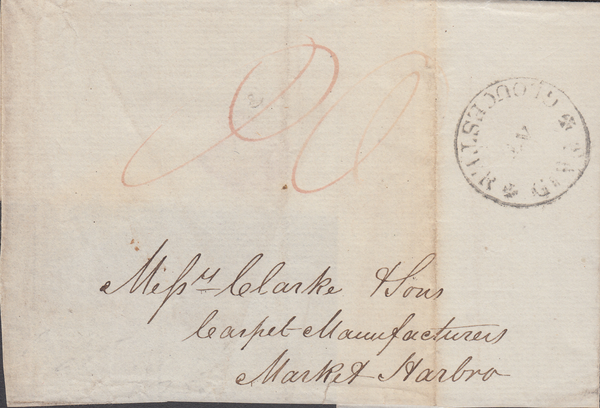 Messrs Clarke & Sons
Carpet Manufacturers
Market Harbro
GLOUCESTER